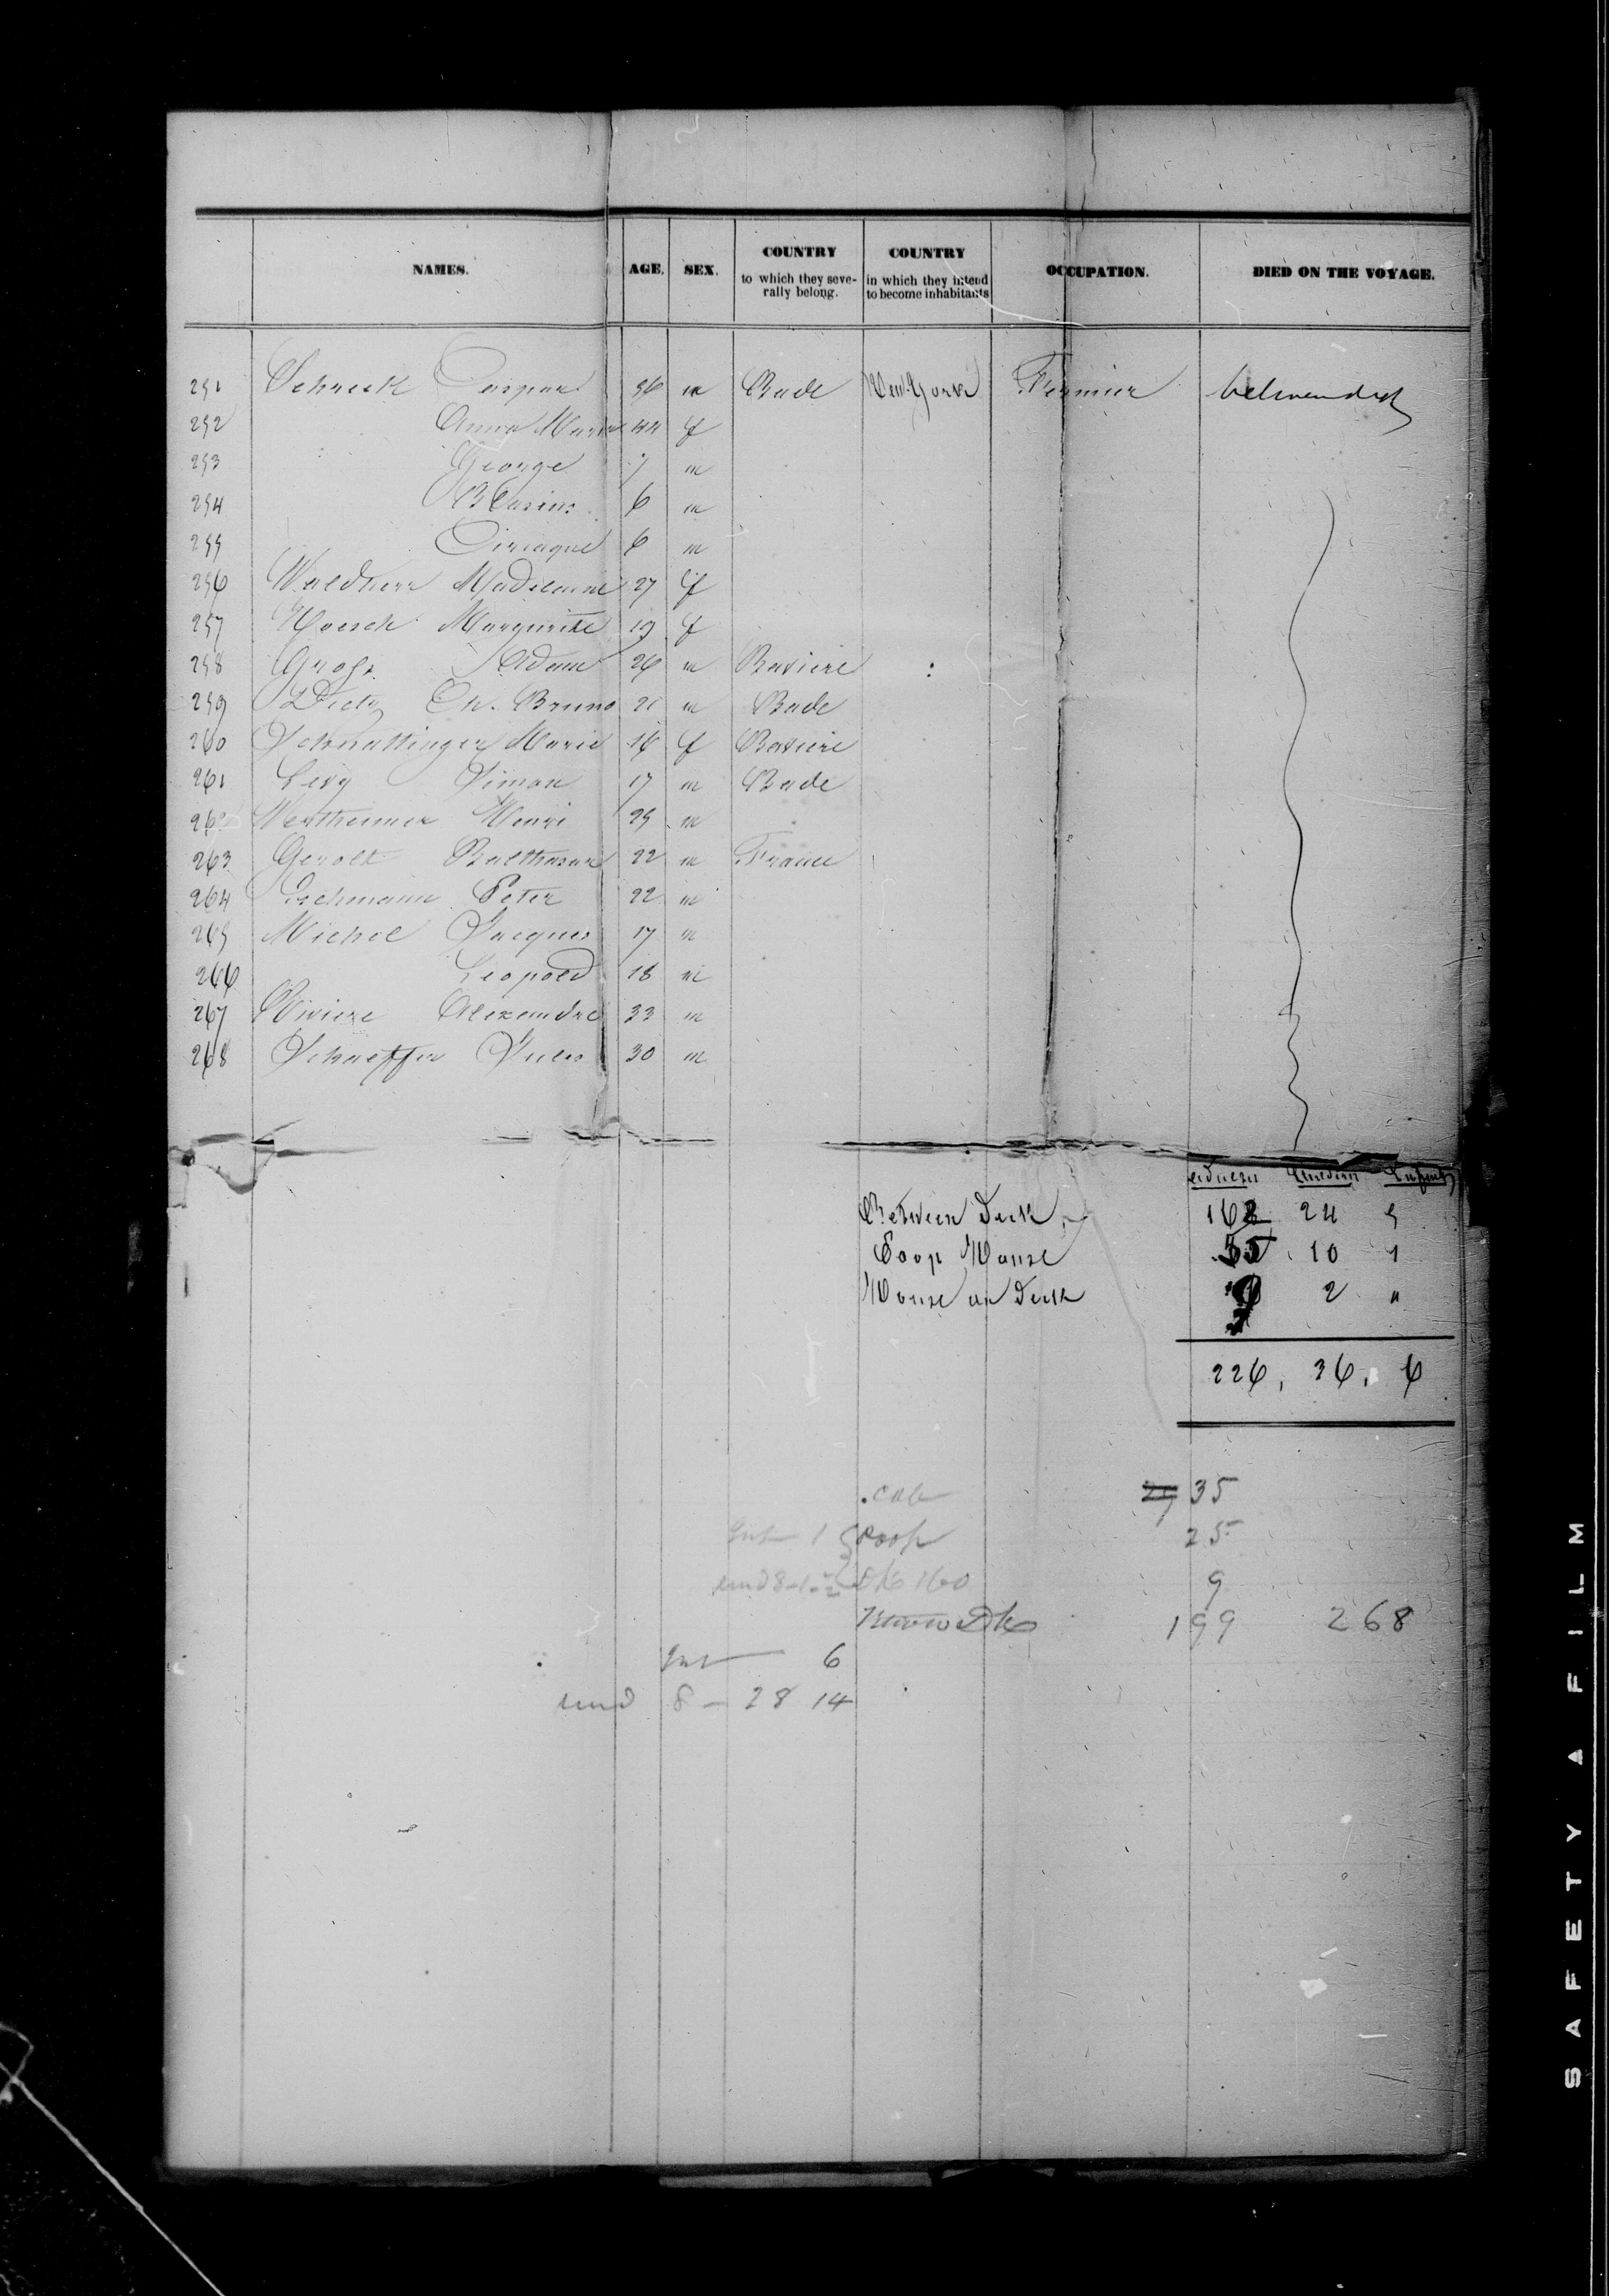 NAMES. AGE. SEX. COUNTRY to which they severally belong. COUNTRY in which they intend to become inhabitants OCCUPATION. DIED ON THE VOYAGE.
251 Schreck Caspar 36 m Bade New York Fermier betweendeck
252 Anna Maria 44 f
253 George 7 m
254 Blasius 6 m
255 Ciriaque 6 m
256 Waldherr Madeleine 27 f
257 Hoesch Margurite 19 f
258 Grofs Adam 26 m Baviere
259 Dietz Ch. Bruno 21 m Bade
260 Schnattinger Marie 16 f Baviere
261 Levy Simon 17 m Bade
262 Wertheimer Henri 25 m
263 Gerolt Balthasar 22 m France
264 Eschmann Peter 22 m
265 Michel Jacques 17 m
266 Leopold 18 m
267 Riviere Alexandre 33 m
268 Schaeffer Jules 30 m
Adults Children Infants
Between Deck 162 24 5
Poop House 55 10 1
House on Deck 9 2 "
226, 36, 6
cab 29 35
Inf 1 Poop 25
und 8 160 9
199 268
Inf 6
und 8 - 28 14
SAFETY FILM